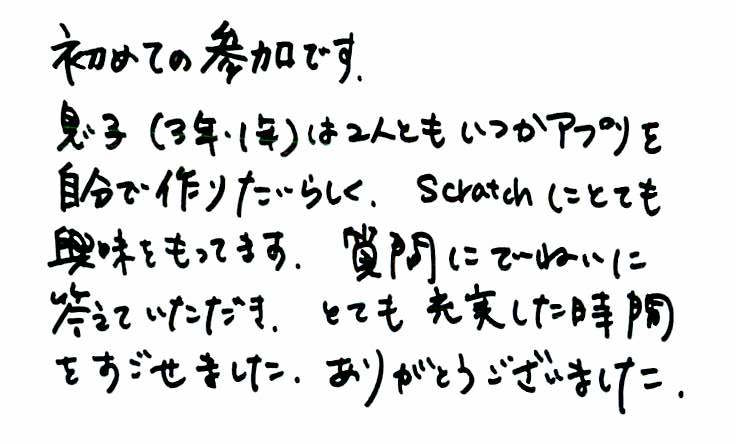 初めての参加です.
息子(3年・1年)は2人とも いつかアプリを
自分で作りたいらしく. Scratchにとても
興味をもってます. 質問にていねいに
答えていただき. とても 充実した時間
をすごせました. ありがとうございました.